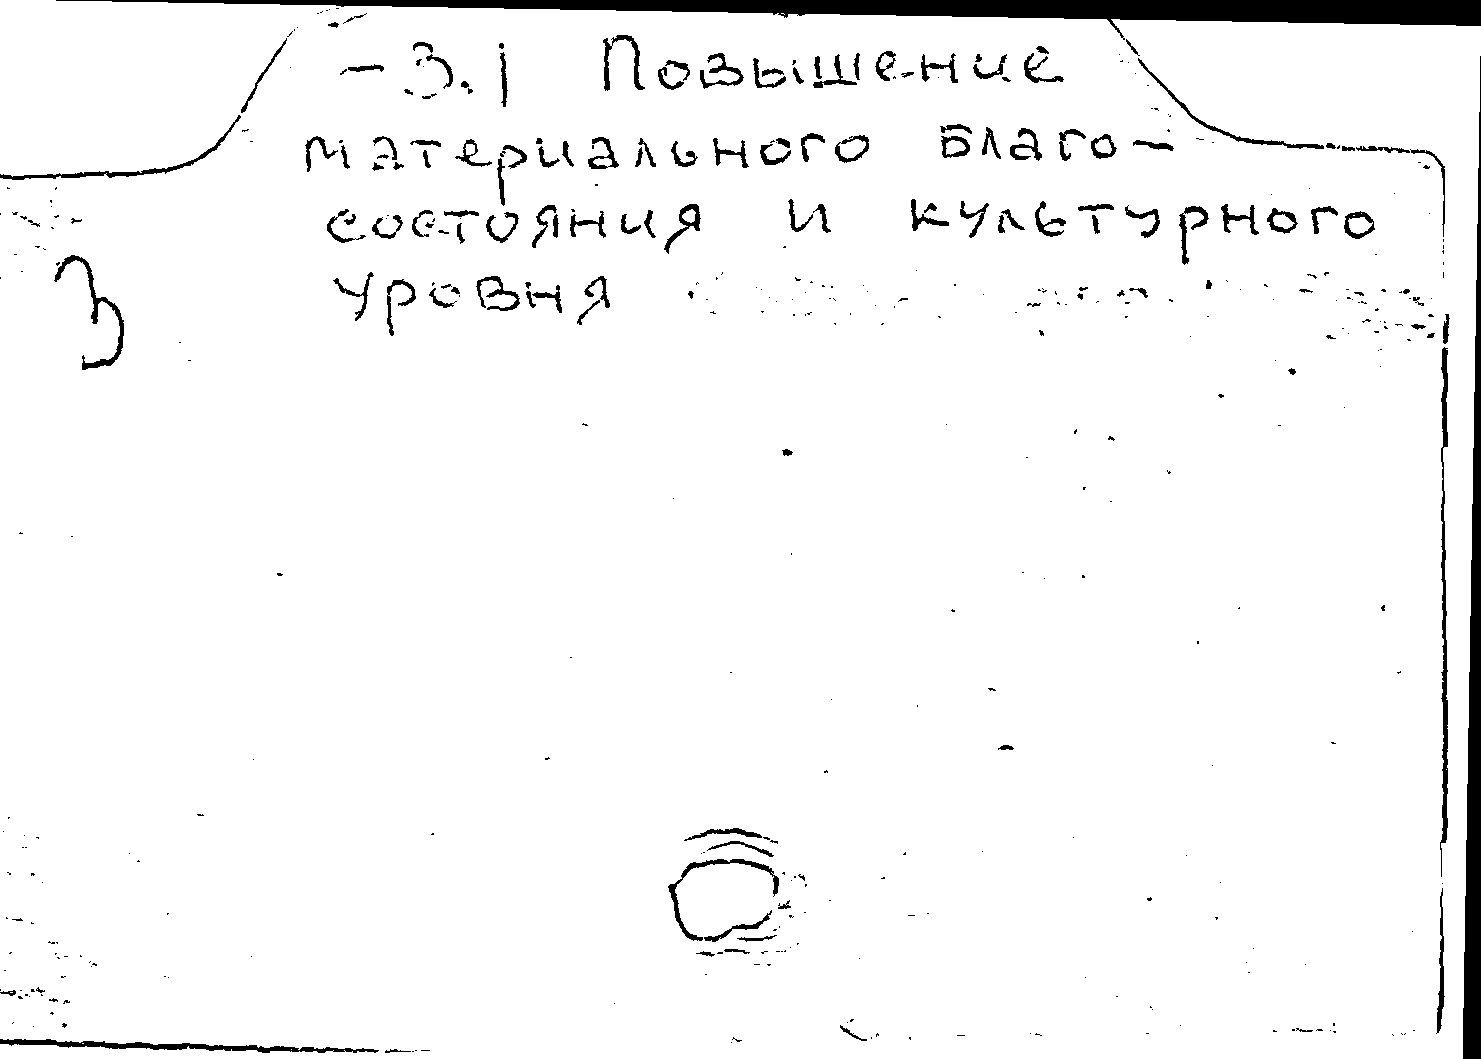 -3.1 Повышение
материального благо-
состояния и культурного
уровня
3